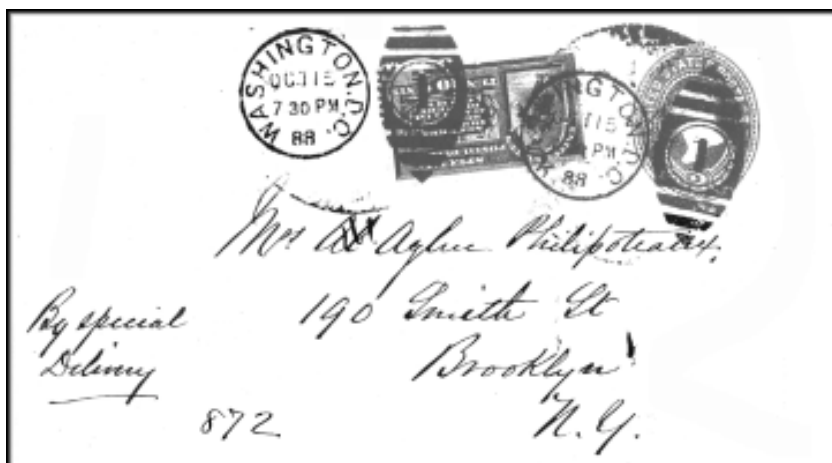 WASHINGTON, D.C.
OCT 15
7 30 PM
88
1
WASHINGTON, D.C.
15
PM
88
1
Mrs Aglee Philipoteaux,
190 Smith St
Brooklyn
N. Y.
By special
Delivery
872